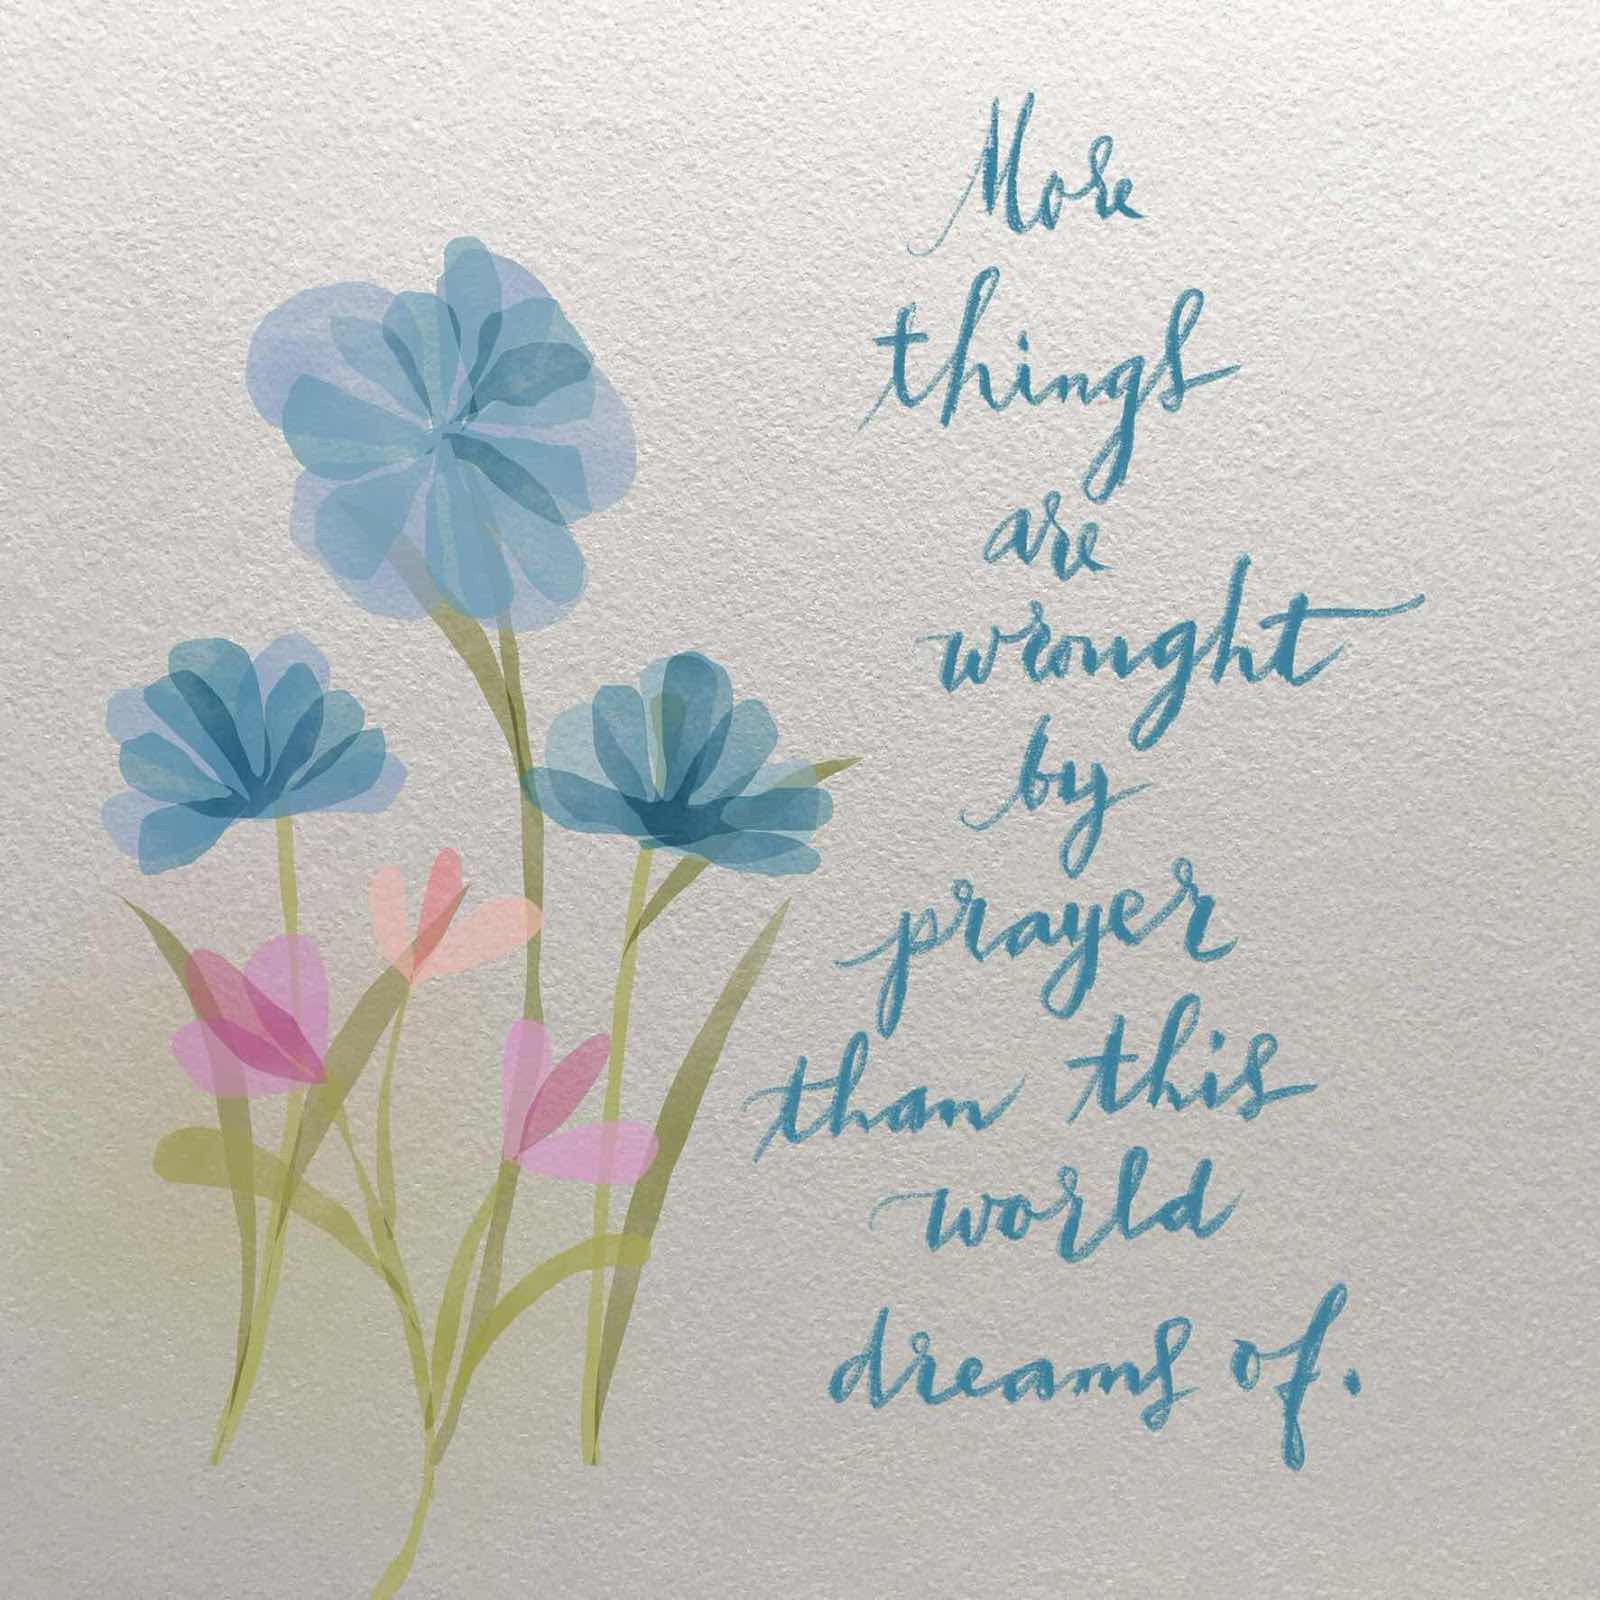 More
things
are
wrought
by
prayer
than this
world
dreams of.